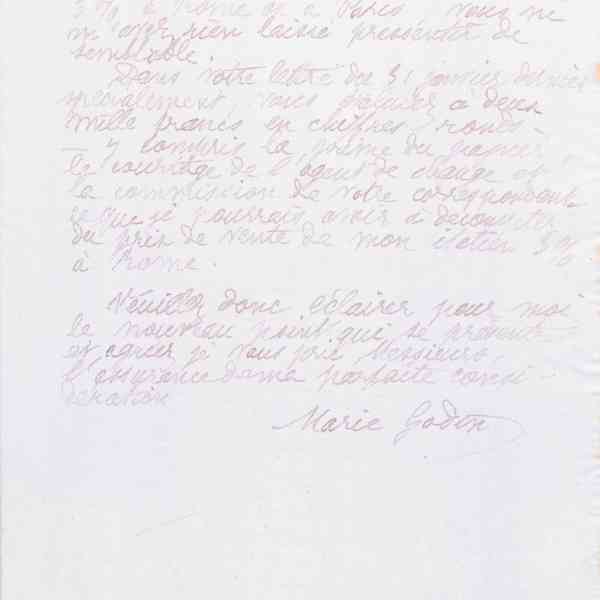 3 % à Rome et à Paris, vous ne
m'avez rien laissé pressentir de
semblable.
Dans votre lettre du 31 janvier dernier
spécialement, vous évaluez à deux
mille francs en chiffres ronds -
- y compris la prime du papier,
le courtage de l'agent de change et
la commission de votre correspondant
ce que je pourrais avoir à décompter
du prix de vente de mon italien 3 %
à Rome.
Veuillez donc éclairer pour moi
le nouveau point qui se présente
et agréer, je vous prie Messieurs,
l'assurance de ma parfaite consi-
dération
Marie Godin